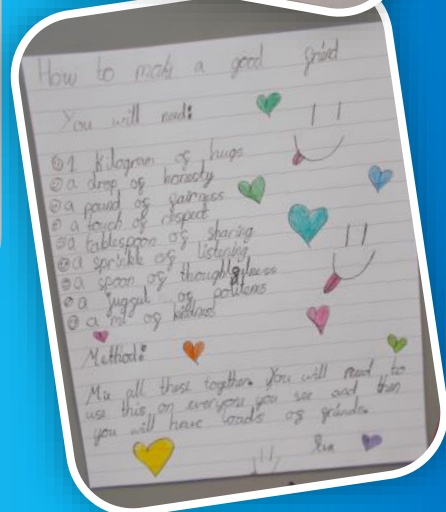 How to make a good friend
You will need:
1 kilogram of hugs
a drop of honesty
a pound of fairness
a touch of respect
a tablespoon of sharing
a sprinkle of listening
a spoon of thoughtfulness
a juggul of politens
a ml of kindnes
Method:
Mix all these together. You will need to
use this on everyone you see and then
you will have loads of friends.